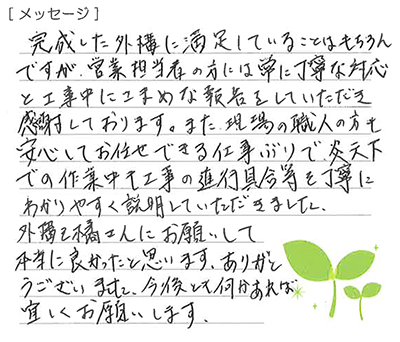 [メッセージ]
完成した外構に満足していることはもちろん
ですが、営業担当者の方には常に丁寧な対応
と工事中にこまめな報告をしていただき
感謝しております。また、現場の職人の方も
安心してお任せできる仕事ぶりで、炎天下
での作業中も工事の進行具合等を丁寧に
わかりやすく説明していただきました。
外構を橘さんにお願いして
本当に良かったと思います。ありがと
うございました。今後とも何かあれば
宜しくお願いします。